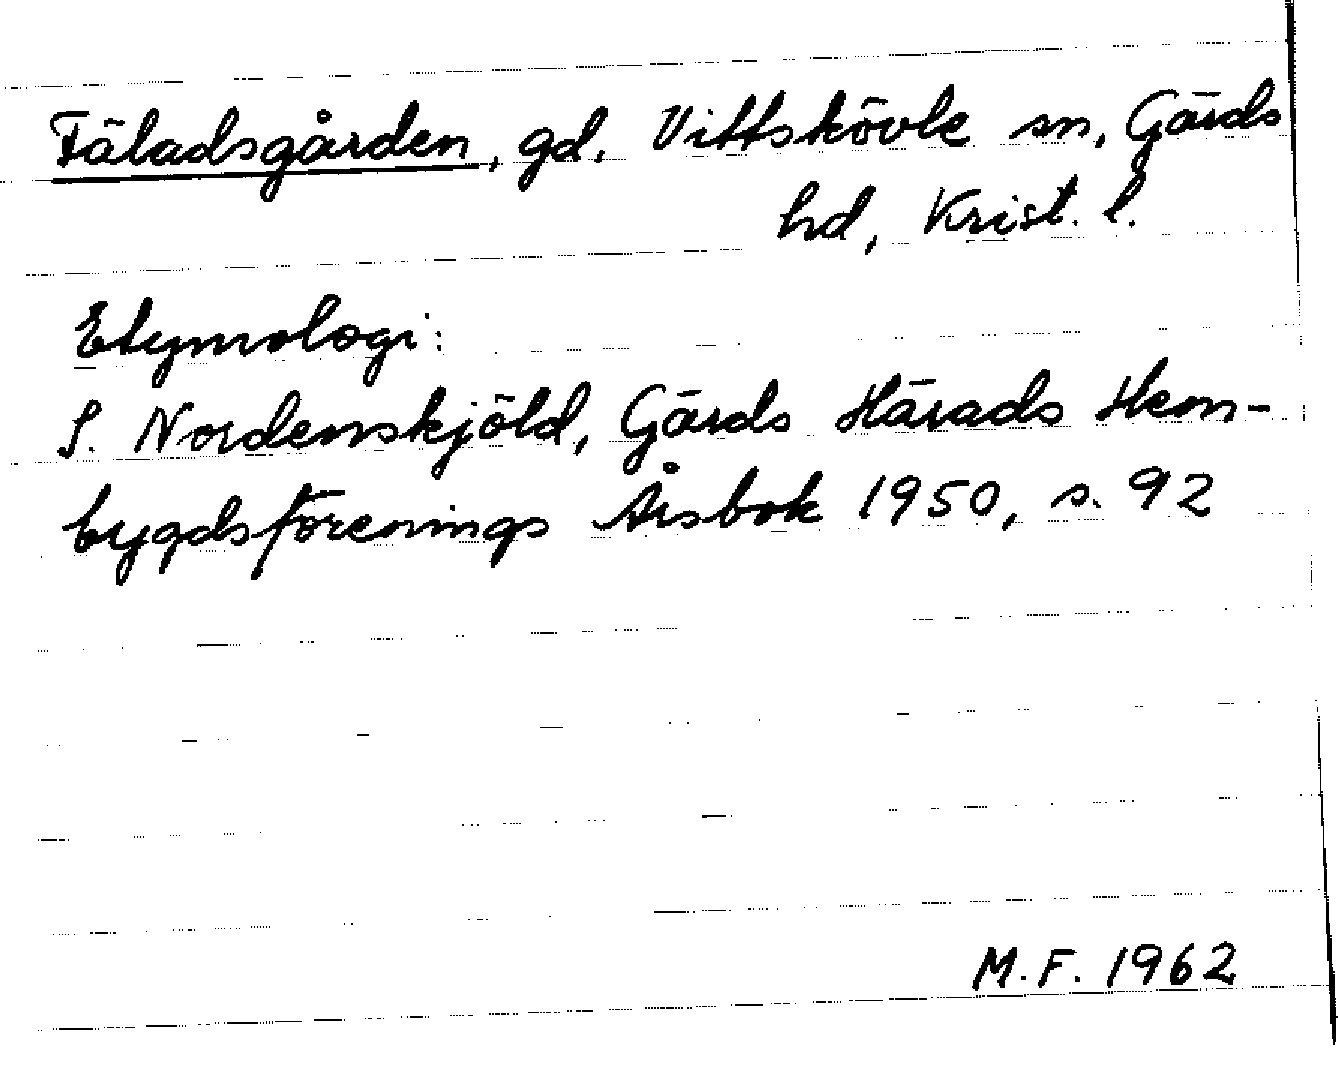 Fäladsgården, gd. Vittskövle sn, Gärds
hd, Krist. l.
Etymologi:
S. Nordenskjöld, Gärds Härads Hem-
bygdsförenings Årsbok 1950, s. 92
M.F. 1962